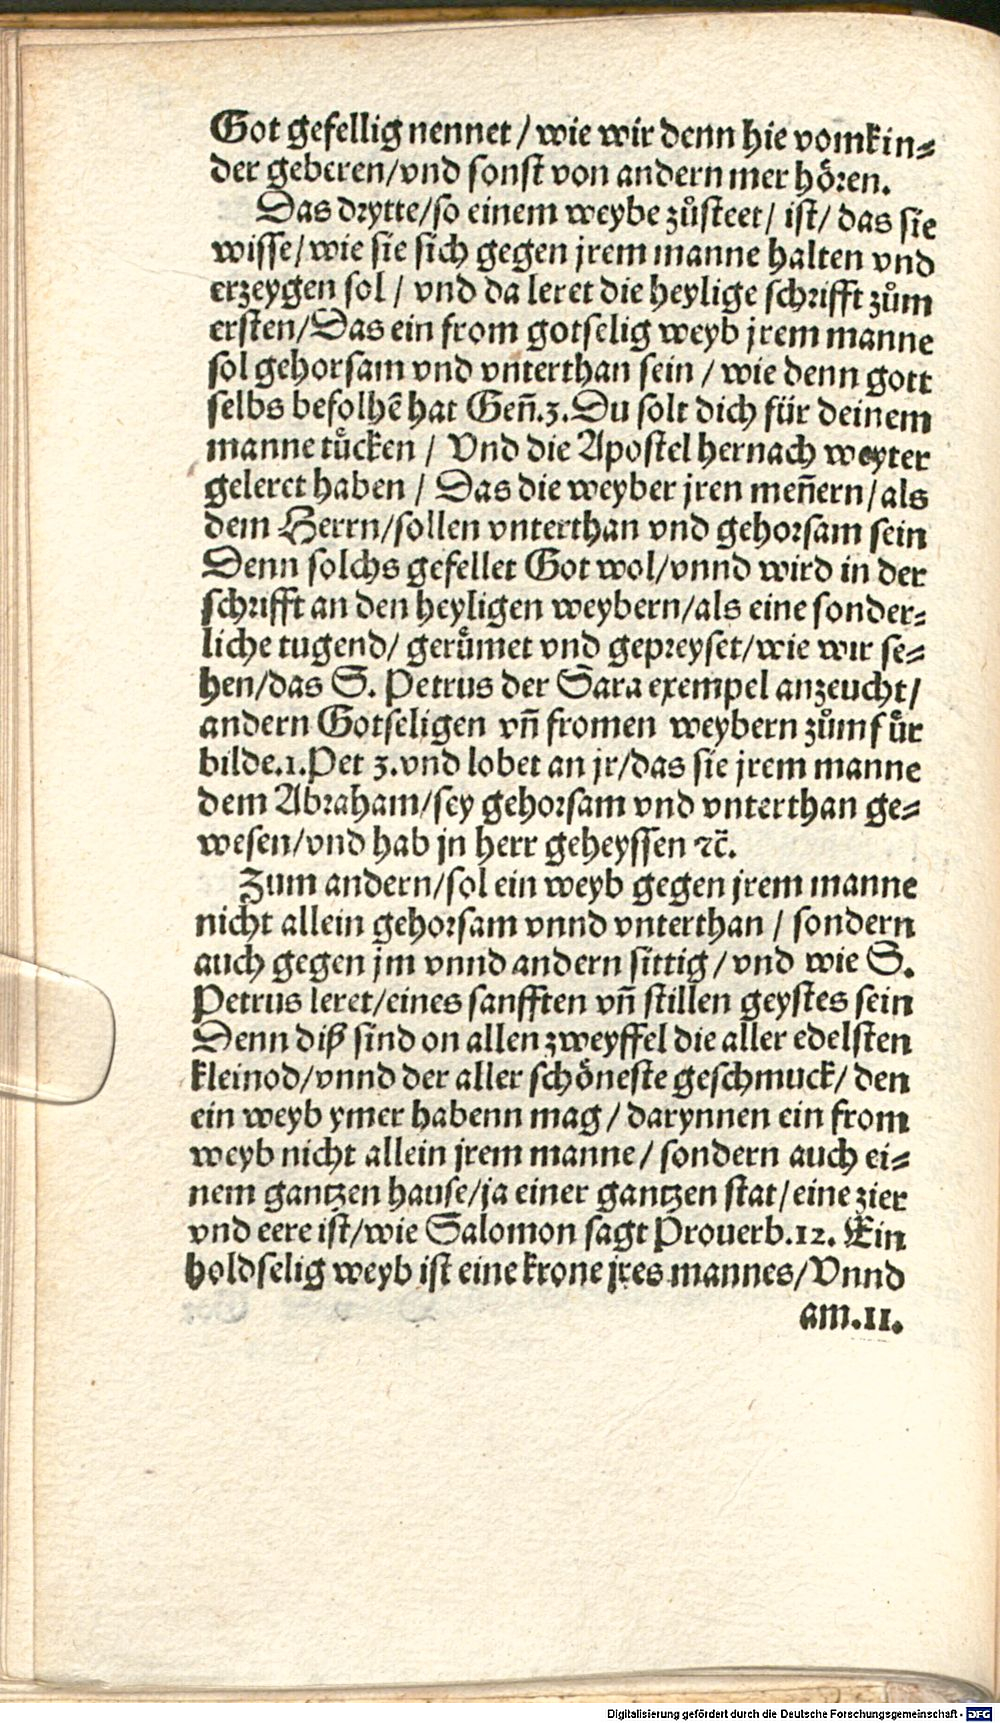 Got gefellig nennet / wie wir denn hie vom kin⸗
der geberen/vnd sonst von andern mer hoͤren.
Das drytte/so einem weybe zuͦsteet/ ist/ das sie
wisse/wie sie sich gegen jrem manne halten vnd
erzeygen sol / vnd da leret die heylige schrifft zuͦm
ersten/Das ein from gotselig weyb jrem manne
sol gehorsam vnd vnterthan sein / wie denn gott
selbs befolhē hat Geñ.3.Du solt dich für deinem
manne tuͤcken / Vnd die Apostel hernach weyter
geleret haben / Das die weyber jren meñern/als
dem Herrn/sollen vnterthan vnd gehorsam sein
Denn solchs gefellet Got wol/vnnd wird in der
schrifft an den heyligen weybern/als eine sonder⸗
liche tugend/ geruͤmet vnd gepreyset/wie wir se⸗
hen/das S. Petrus der Sara exempel anzeucht/
andern Gotseligen vñ fromen weybern zuͦm fuͤr
bilde.1.Pet 3.vnd lobet an jr/das sie jrem manne
dem Abraham/sey gehorsam vnd vnterthan ge⸗
wesen/vnd hab jn herr geheyssen ⁊c̄.
Zum andern/sol ein weyb gegen jrem manne
nicht allein gehorsam vnnd vnterthan / sondern
auch gegen jm vnnd andern sittig/vnd wie S.
Petrus leret/eines sanfften vñ stillen geystes sein
Denn diß sind on allen zweyffel die aller edelsten
kleinod/vnnd der aller schoͤneste geschmuck/ den
ein weyb ymer habenn mag/ darynnen ein from
weyb nicht allein jrem manne/ sondern auch ei⸗
nem gantzen hause/ja einer gantzen stat/eine zier
vnd eere ist/wie Salomon sagt Prouerb.12. Ein
holdselig weyb ist eine krone jres mannes/Vnnd
am.11.
Digitalisierung gefördert durch die Deutsche Forschungsgemeinschaft - DFG